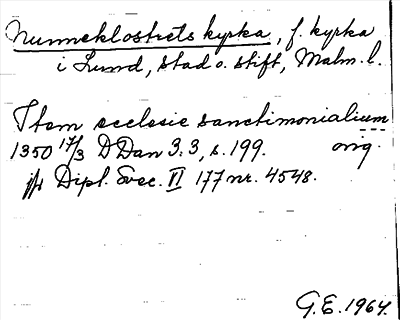 Nunneklostrets kyrka, f. kyrka
i Lund, stad o. stift, Malm. l.
Item ecclesie sanctimonialium
1350 17/3 DDan 3:3, s. 199. orig.
jfr Dipl. Svec. VI 177 nr. 4548.
G.E. 1964.